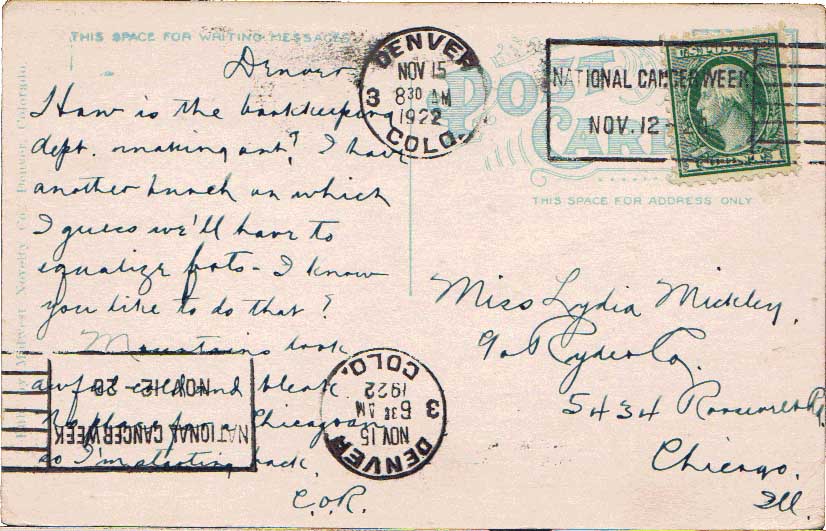 THIS SPACE FOR WRITING MESSAGES
Denver
How is the bookkeeping
dept. making out? I have
another hunch on which
I guess we'll have to
equalize frts - I know
you like to do that?
Mountains look
awful cold and bleak
No place for a Chicagoan
so I'm starting back.
C.O.R.
Midwest Novelty Co., Denver, Colorado.
DENVER
NOV 15
8 30 AM
1922
COLO.
3
POST CARD
NATIONAL CANCER WEEK
NOV. 12 - 20
THIS SPACE FOR ADDRESS ONLY
Miss Lydia Mickley.
% Ryder Co.
5434 Roosevelt Rd.
Chicago.
Ill.
NATIONAL CANCER WEEK
NOV. 12 - 20
DENVER
NOV 15
6 30 AM
1922
COLO.
3